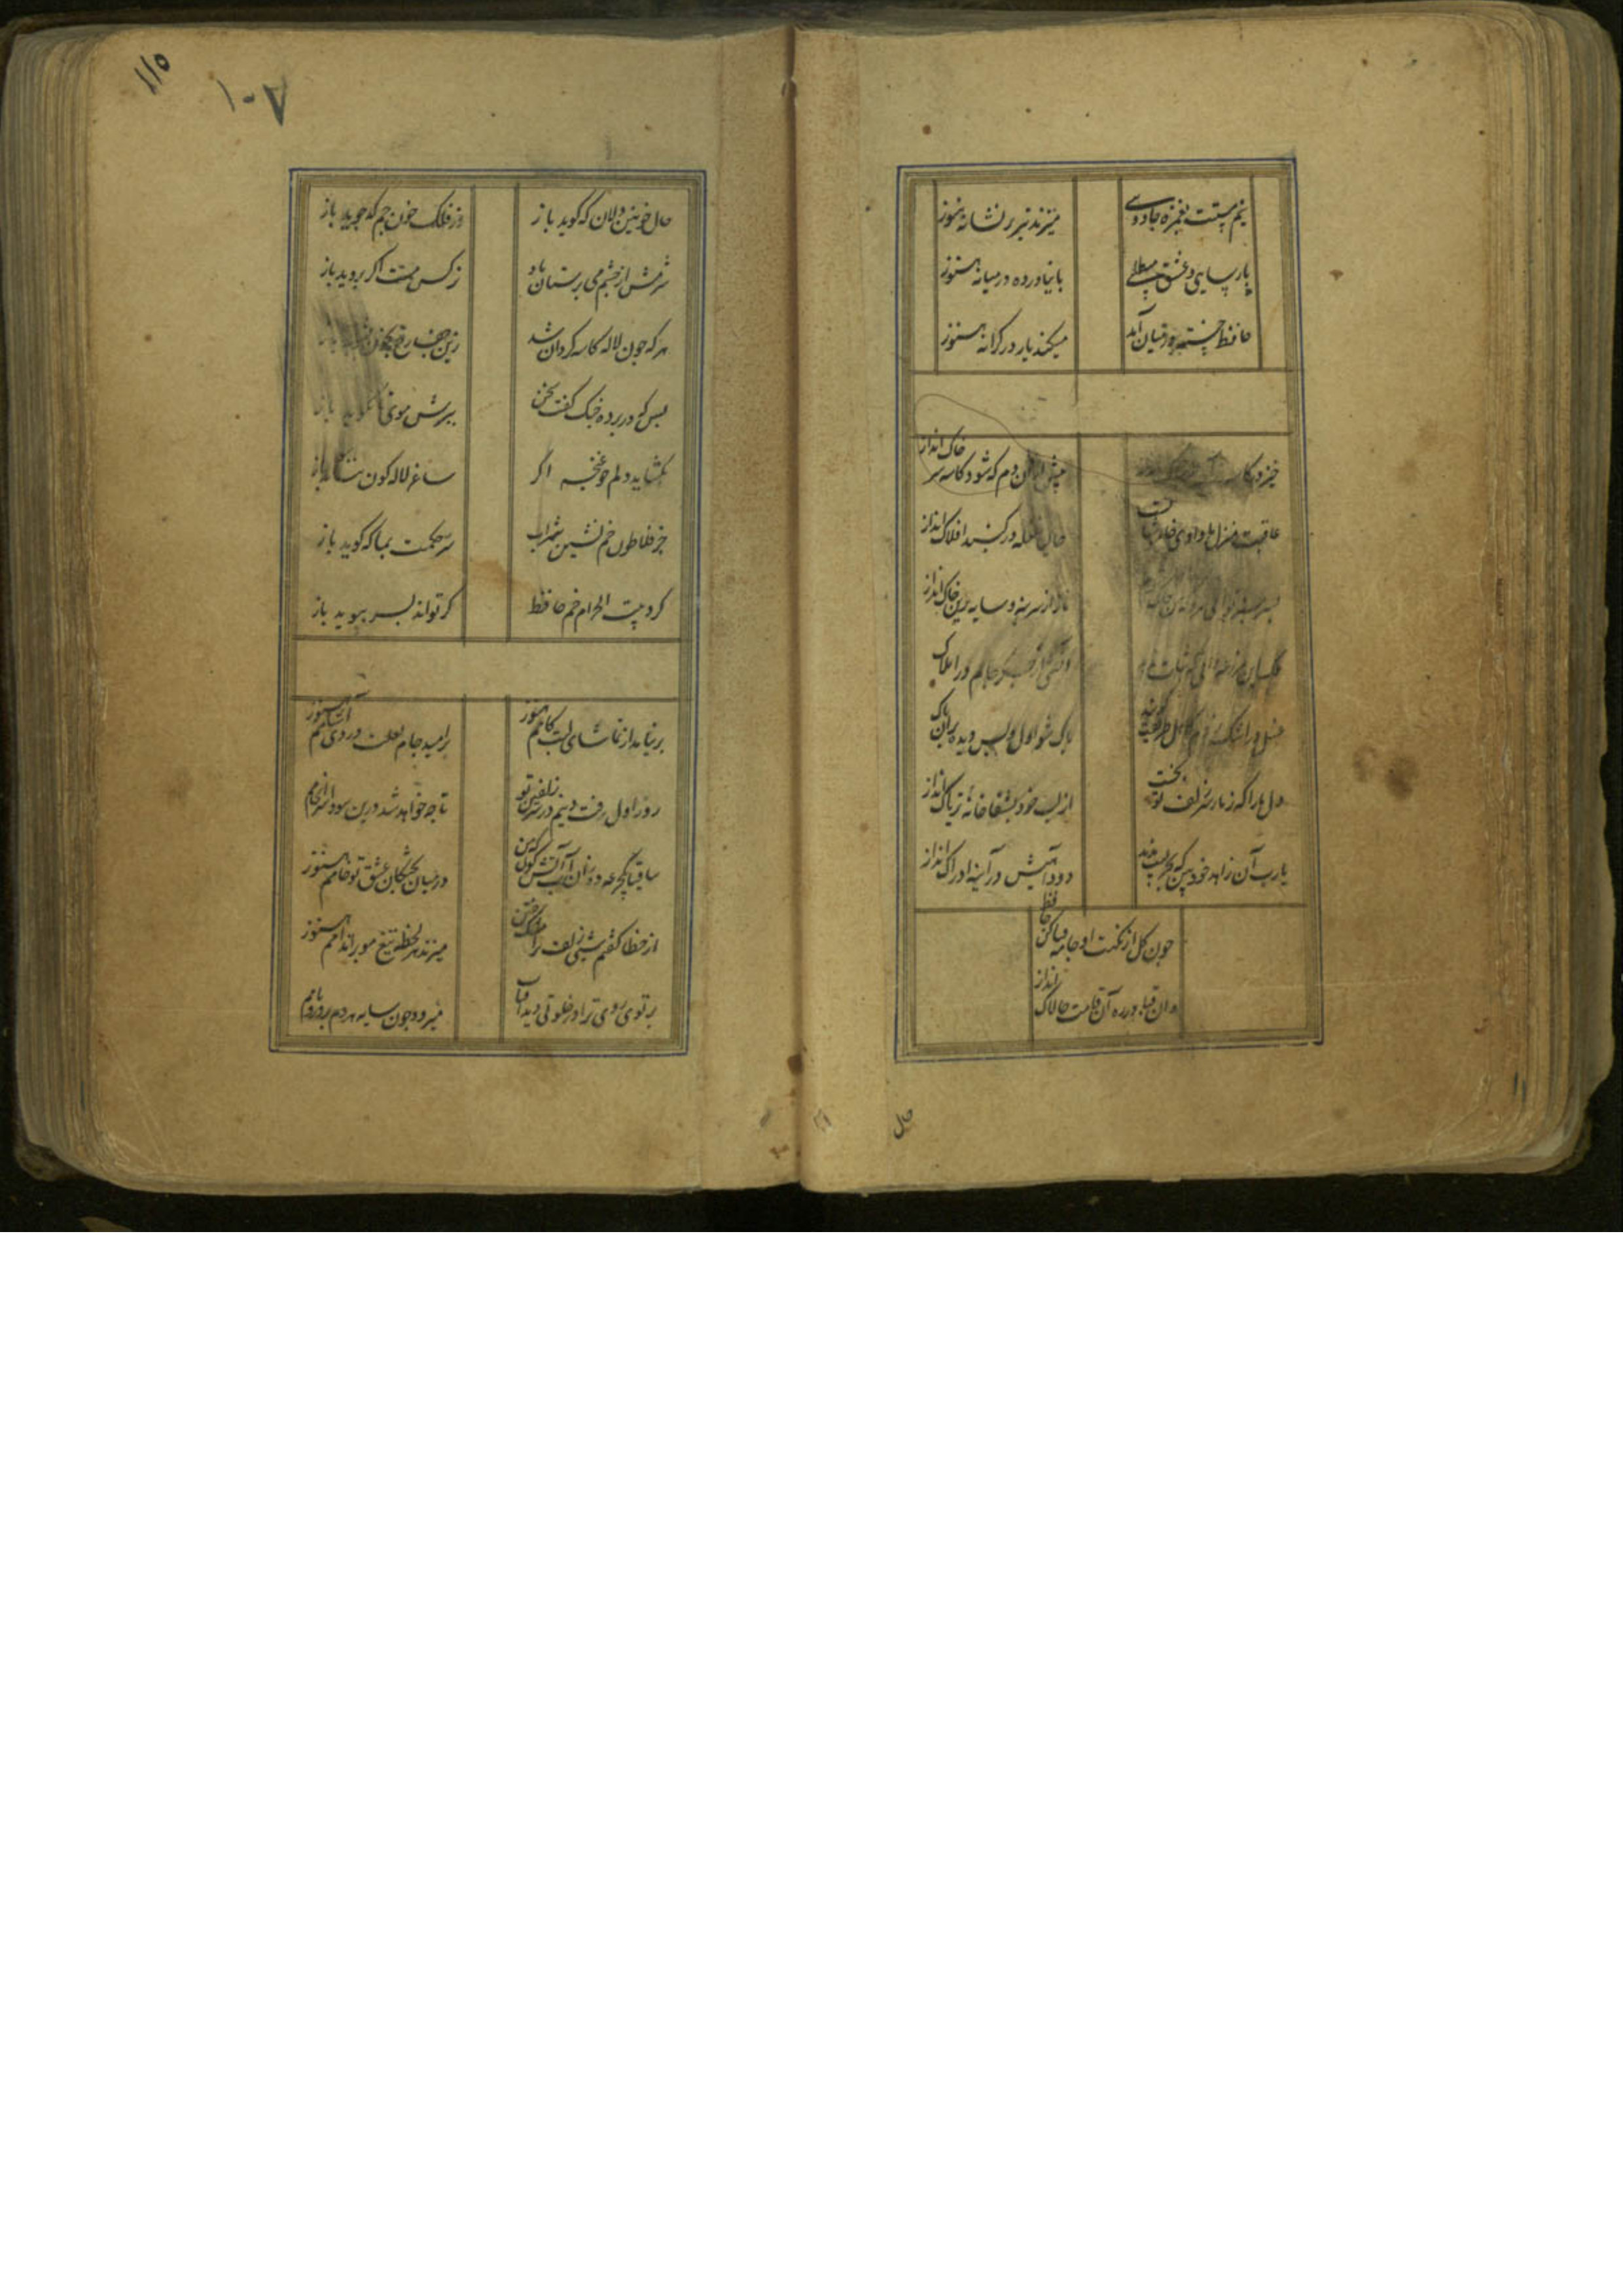 نیم مستت بغمزه جادوی
میزند تیر بر نشانه هنوز
پارسایی و عشق و
پا نیاورده در میانه هنوز
حافظ خسته در میان آمد
میکند یار در کرانه هنوز
خیز و
پیش از آن دم که شود کاسه سر خاک انداز
عاقبت منزل ما وادی خاموشانست
حالی غلغله در کنبد افلاک انداز
ناز از سر بنه و سایه برین خاک انداز
آتشی از جکر جام در املاک
غسل در اشک زدم کاهل طریقت کویند
پاک شو اول و پس دیده بران پاک
دل ما را که ز مار سر زلف تو بخست
از لب خود بشفاخانه تریاک انداز
یارب آن زاهد خودبین که بجز عیب ندید
دود آهیش در آینه ادراک انداز
چون کل از نکهت او جامه قبا کن حافظ
وان قبا در ره آن قامت چالاک انداز
حال
۱۱۵
۱۰۷
حال خونین دلان که کوید باز
وز فلک خون جم که جوید باز
شرمش از چشم می پرستان باد
نرکس مست اکر بروید باز
هر که چون لاله کاسه کردان شد
زین جفا رخ بخون
بس که در پرده چنک کفت سخن
ببرش موی تا نموید باز
نکشاید دلم چو غنچه اکر
ساغر لاله کون باز
جز فلاطون خم نشین شراب
سر حکمت بما که کوید باز
کرد بیت الحرام خم حافظ
کر تواند بسر ببوید باز
بر نیامد از تماشای لبت کامم هنوز
بر امید جام لعلت دردی آشامم هنوز
روز اول رفت دینم در سر زلفین تو
تا چه خواهد شد درین سودا سرانجامم
ساقیا یکجرعه ده زان آب آتش کون که من
در میان پختکان عشق تو خامم هنوز
از خطا کفتم شبی زلف ترا مشک ختن
میزند هر لحظه تیغ مو بر اندامم هنوز
پرتوی روی ترا در خلوتی دید آفتاب
میرود چون سایه هر دم بر در و بامم